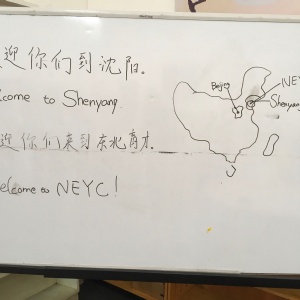 迎你们到沈阳.
lcome to Shenyang.
迎你们来到东北育才.
elcome to NEYC!
Beijing
NEY
Shenyang